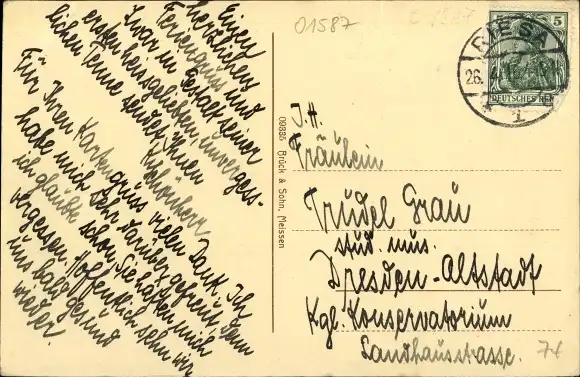 Einen
herzlichen
Feriengruß und
zwar in Gestalt seiner
ersten heißgeliebten, unvergess-
lichen Tenne sendet Ihnen
Schönherr
Für Ihren Kartengruss vielen Dank. Ich
habe mich sehr darüber gefreut, denn
ich glaubte schon, Sie hätten mich
vergessen. Hoffentlich sehn wir
uns bald gesund
wieder.
01587
RIESA
26.
1
5
DEUTSCHES REI
09835 Brück & Sohn, Meissen
I. H.
Fräulein
Trudel Grau
stud. mus.
Dresden-Altstadt
Kgl. Konservatorium
Landhausstrasse.
7+